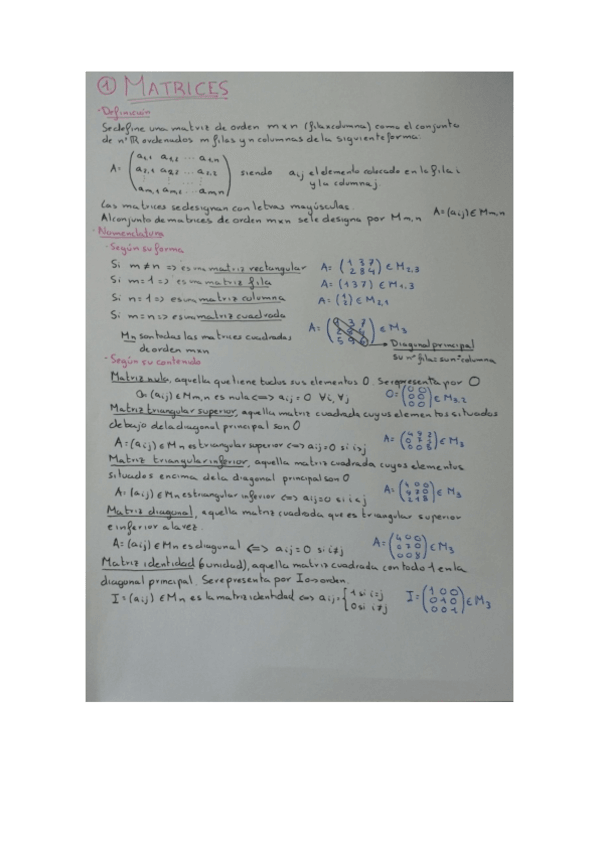 ① MATRICES
· Definición
Se define una matriz de orden m×n (fila×columna) como el conjunto
de nº ℝ ordenados m filas y n columnas de la siguiente forma:
a1,1 a1,2 ... a1,n
A= a2,1 a2,2 ... a2,2 siendo aij el elemento colocado en la fila i
y la columna j.
am,1 am,2 ... am,n
Las matrices se designan con letras mayúsculas.
Al conjunto de matrices de orden m×n se le designa por Mm,n A=(aij)∈Mm,n
· Nomenclatura
· Según su forma
Si m≠n => es una matriz rectangular A=(1 3 7 / 2 8 4) ∈ M2,3
Si m=1 => es una matriz fila A=(1 3 7) ∈ M1,3
Si n=1 => es una matriz columna A=(1 / 2) ∈ M2,1
Si m=n => es una matriz cuadrada A= ∈ M3
Mn son todas las matrices cuadradas → Diagonal principal
de orden m×n su nº filas = su nº columna
· Según su contenido
Matriz nula, aquella que tiene todos sus elementos 0. Se representa por O
O=(aij)∈Mm,n es nula <=> aij=0 ∀i,∀j O=(0 0 / 0 0 / 0 0) ∈ M3,2
Matriz triangular superior, aquella matriz cuadrada cuyos elementos situados
debajo de la diagonal principal son 0
A=(aij)∈Mn es triangular superior <=> aij=0 si i>j A= ∈ M3
Matriz triangular inferior, aquella matriz cuadrada cuyos elementos
situados encima de la diagonal principal son 0
A=(aij)∈Mn es triangular inferior <=> aij=0 si i<j A= ∈ M3
Matriz diagonal, aquella matriz cuadrada que es triangular superior
e inferior a la vez.
A=(aij)∈Mn es diagonal <=> aij=0 si i≠j A=(4 0 0 / 0 7 0 / 0 0 8) ∈ M3
Matriz identidad (o unidad), aquella matriz cuadrada con todo 1 en la
diagonal principal. Se representa por I orden.
I=(aij)∈Mn es la matriz identidad <=> aij={1 si i=j / 0 si i≠j I=(1 0 0 / 0 1 0 / 0 0 1) ∈ M3